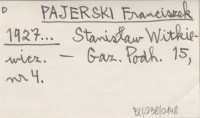 D PAJERSKI Franciszek
1927... Stanisław Witkie-
wicz. — Gaz. Podh. 15,
nr 4.